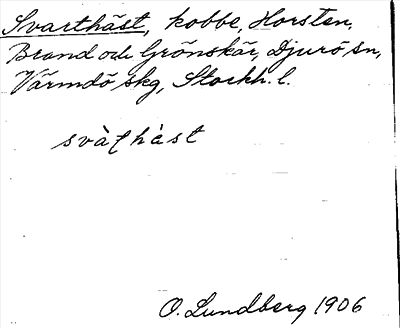 Svarthäst, kobbe, Horsten,
Brand och Grönskär, Djurö sn,
Värmdö skg, Stockh. l.
svàʈhàst
O. Lundberg 1906